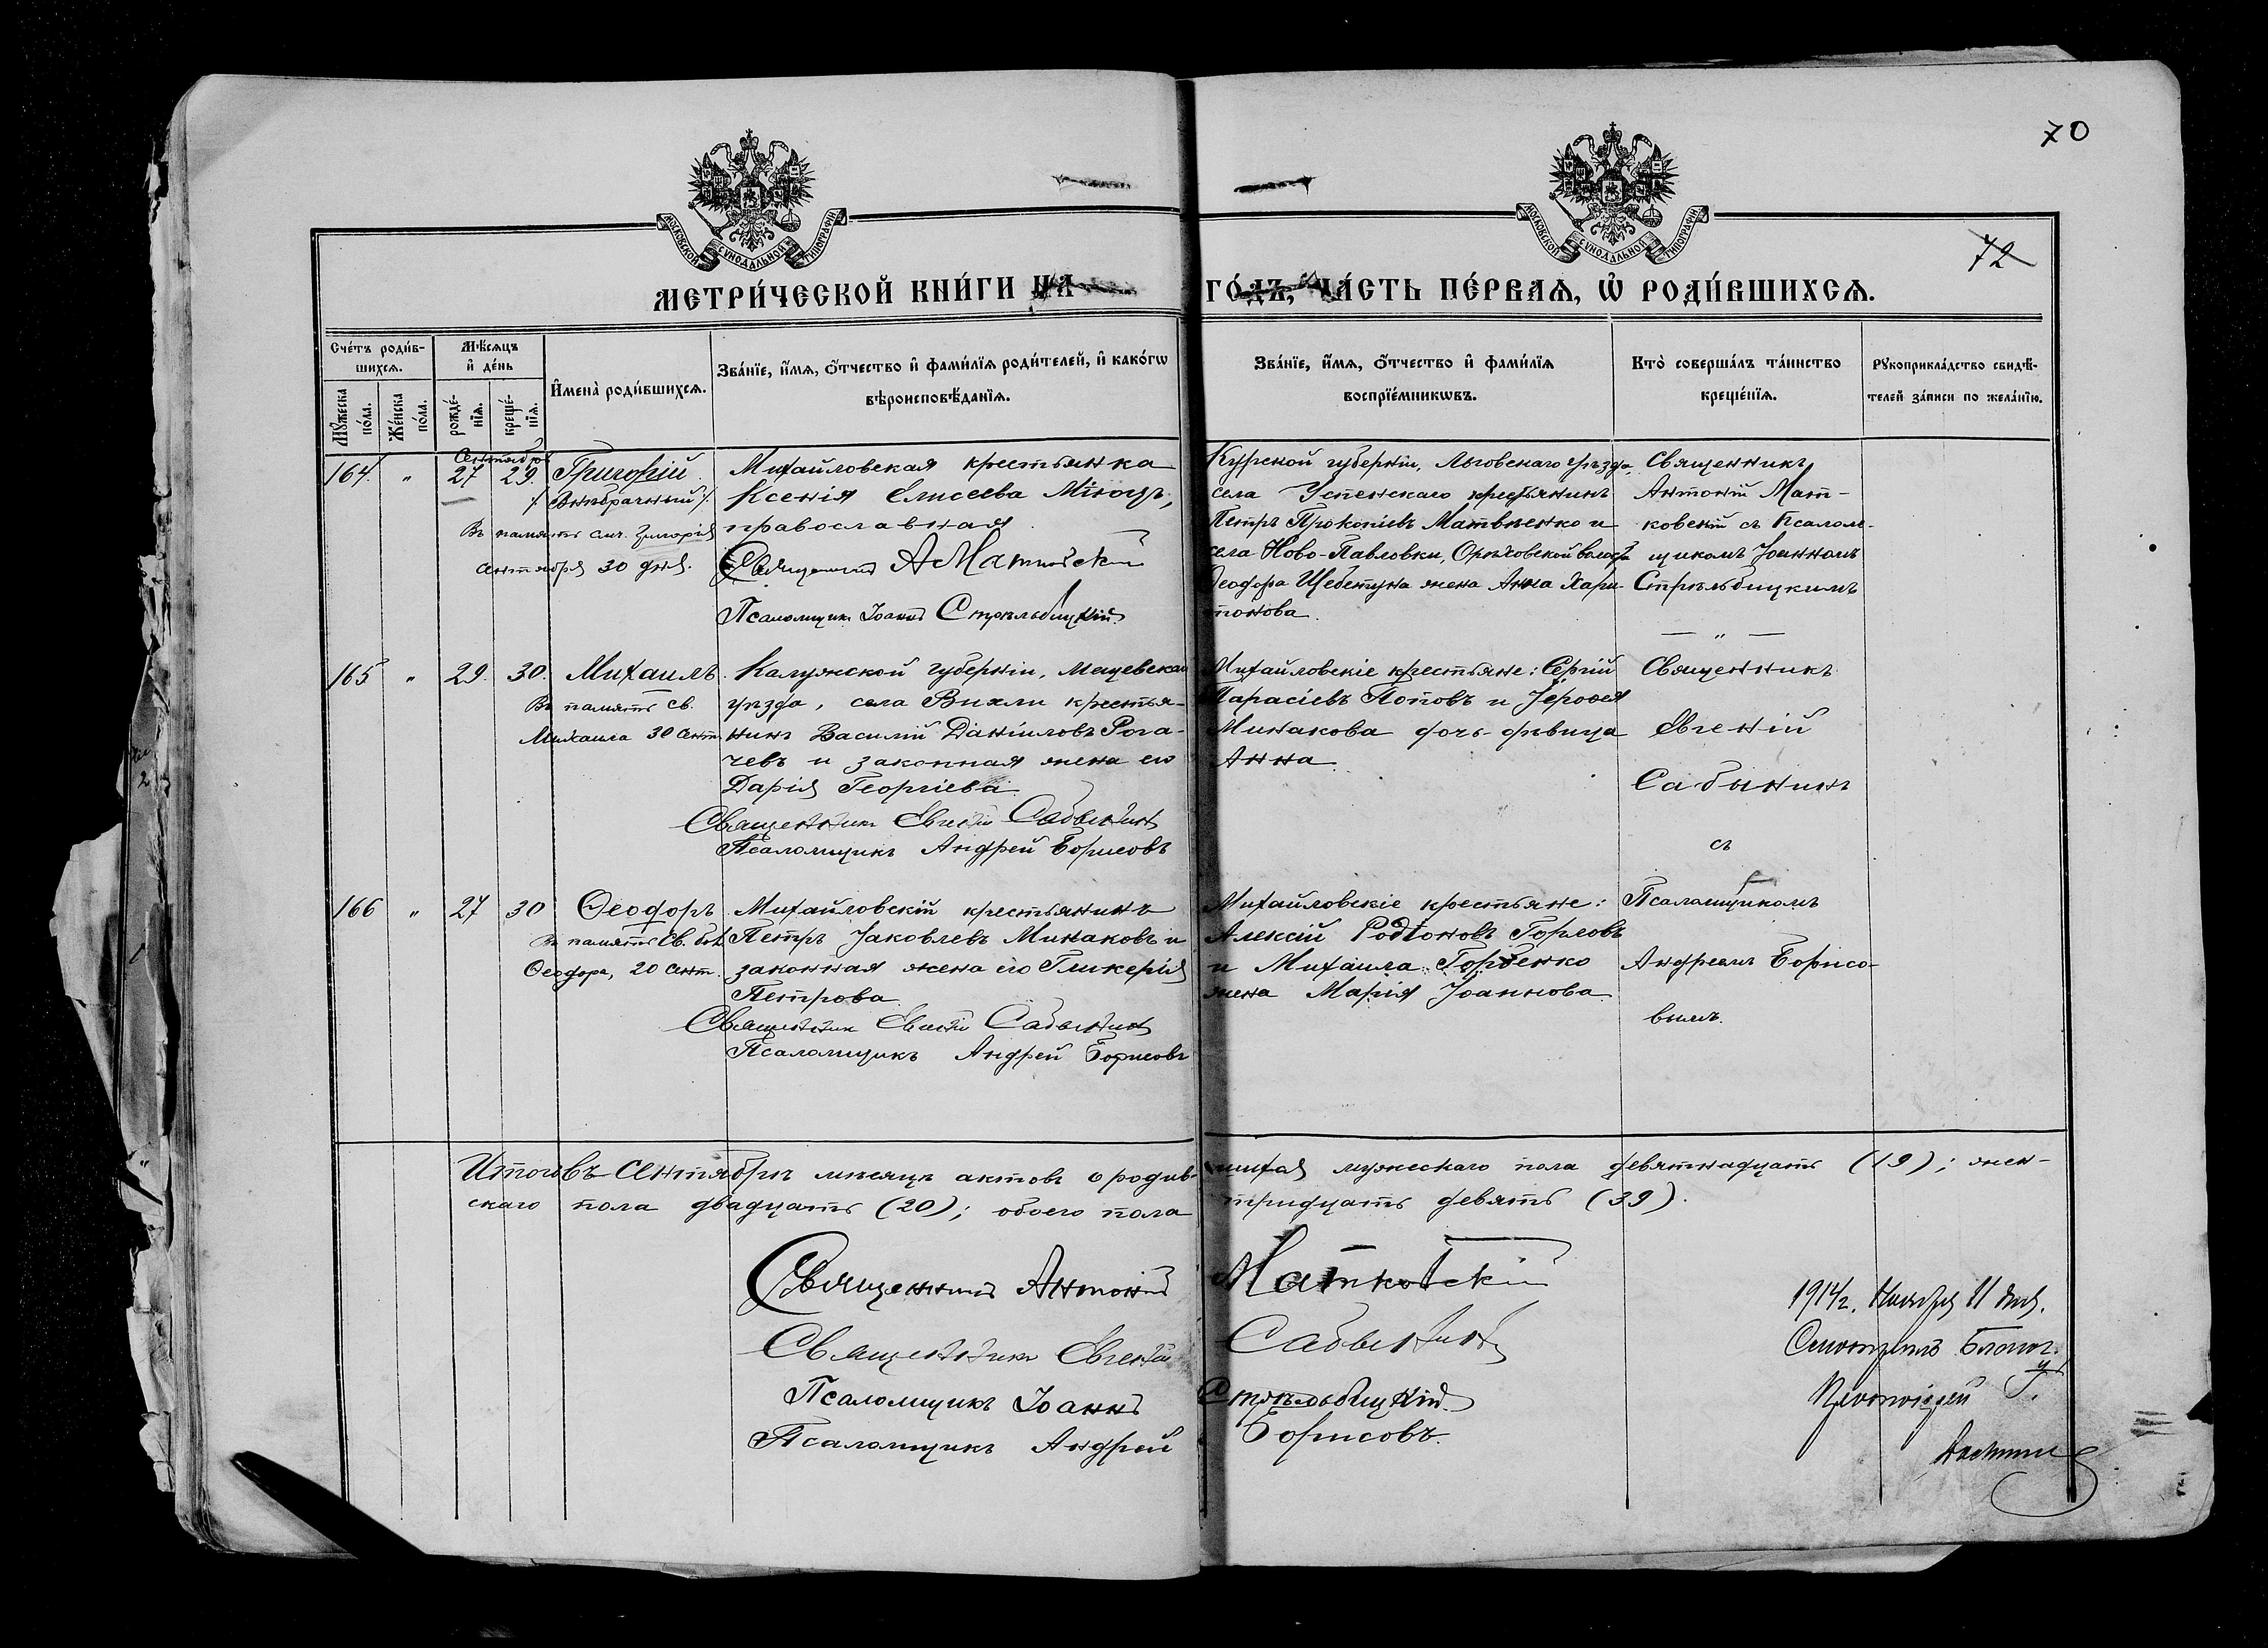 70
72
МОСКОВСКОЙ СѴНОДАЛЬНОЙ ТИПОГРАФІИ
МОСКОВСКОЙ СѴНОДАЛЬНОЙ ТИПОГРАФІИ
МЕТРИ́ЧЕСКОЙ КНИ́ГИ НА ГО́ДЪ, ЧА́СТЬ ПЕ́РВАѦ, Ѡ РОДИ́ВШИХСѦ.
Сче́тъ роди́в-
шихсѧ.
Мꙋ́жеска
по́ла.
Же́нска
по́ла.
Мѣ́сѧцъ
и҆ де́нь
рожде́-
нїѧ.
креще́-
нїѧ.
И҆мена̀ роди́вшихсѧ.
Зва́нїе, и҆́мѧ, ѻ҆́тчество и҆ фами́лїѧ роди́телей, и҆ како́гѡ
вѣроисповѣ́данїѧ.
Зва́нїе, и҆́мѧ, ѻ҆́тчество и҆ фами́лїѧ
воспрїе́мникѡвъ.
Кто̀ соверша́лъ та́инство
креще́нїѧ.
Рꙋкоприкла́дство свидѣ́-
телей за́писи по жела́нїю.
Сентябрь
164. " 27 29. Григорій
/Внѣбрачный/.
Въ память смч. Григорія
сентября 30 дня.
Михайловская крестьянка
Ксенія Елисеева
православная
Священникъ А Матковскій
Псаломщикъ Іоаннъ Стрѣльбицкій.
Курской губерніи, Льговскаго уѣзда,
села Успенскаго крестьянинъ
Петръ Прокопіевъ Матвѣенко и
села Ново-Павловки, Орѣховской волости
Ѳеодора Щебетуна жена Анна Хари-
тонова.
Священникъ
Антоній Мат-
ковскій съ Псалом-
щикомъ Іоанномъ
Стрѣльбицкимъ
— " —
165 " 29. 30. Михаилъ.
Въ память св.
Михаила 30 сент.
Калужской губерніи, Мещевскаго
уѣзда, села Вихли крестья-
нинъ Василій Даніиловъ Рога-
чевъ и законная жена его
Дарія Георгіева.
Священникъ Евгеній Сабынинъ
Псаломщикъ Андрей Борисовъ
Михайловскіе крестьяне: Сергій
Тарасіевъ Поповъ и Іероѳея
Минакова дочь-дѣвица
Анна.
Священникъ
Евгеній
Сабынинъ
съ
Псаломщикомъ
Андреемъ Борисо-
вымъ.
166 " 27 30 Ѳеодоръ
Въ память Св. блг.
Ѳеодора, 20 сент.
Михайловскій крестьянинъ
Петръ Іаковлевъ Минаковъ и
законная жена его Гликерія
Петрова
Священникъ Евгеній Сабынинъ
Псаломщикъ Андрей Борисовъ
Михайловскіе крестьяне:
Алексій Родіоновъ
и Михаила Горбенко
жена Марія Іоаннова
Итого въ Сентябрѣ мѣсяцѣ актовъ о родив-шихся мужескаго пола девятнадцать (19); жен-
скаго пола двадцать (20); обоего пола тридцать девять (39).
Священникъ Антоній Матковскій
Священникъ Евгеній Сабынинъ
Псаломщикъ Іоаннъ Стрѣльбицкій.
Псаломщикъ Андрей Борисовъ.
1914г. Ноября 11 дня.